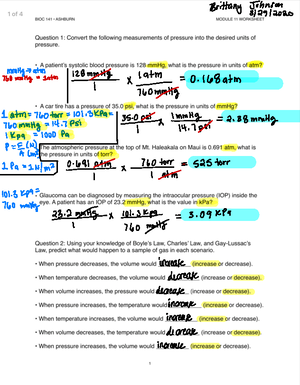 1 of 4
Brittany Johnson
8/29/2020
BIOC 141 - ASHBURN
MODULE 11 WORKSHEET
Question 1: Convert the following measurements of pressure into the desired units of
pressure.
• A patient's systolic blood pressure is 128 mmHg, what is the pressure in units of atm?
mmHg → atm
760 mmHg = 1atm
128 mmHg / 1 x 1 atm / 760 mmHg = 0.168 atm
• A car tire has a pressure of 35.0 psi, what is the pressure in units of mmHg?
1 atm = 760 torr = 101.3 kPa =
760 mmHg = 14.7 Psi
1 KPa = 1000 Pa
35.0 psi / 1 x 1 mmHg / 14.7 psi = 2.38 mmHg
P = F (N)
A (m²)
The atmospheric pressure at the top of Mt. Haleakala on Maui is 0.691 atm, what is
the pressure in units of torr?
1 Pa = 1 N / m²
0.691 atm / 1 x 760 torr / 1 atm = 525 torr
101.3 KPa =
760 mmHg
• Glaucoma can be diagnosed by measuring the intraocular pressure (IOP) inside the
eye. A patient has an IOP of 23.2 mmHg, what is the value in kPa?
23.2 mmHg / 1 x 101.3 KPa / 760 mmHg = 3.09 KPa
Question 2: Using your knowledge of Boyle's Law, Charles' Law, and Gay-Lussac's
Law, predict what would happen to a sample of gas in each scenario.
• When pressure decreases, the volume would increase (increase or decrease).
• When temperature decreases, the volume would decrease (increase or decrease).
• When volume increases, the pressure would decrease (increase or decrease).
• When pressure increases, the temperature would increase (increase or decrease).
• When temperature increases, the volume would increase (increase or decrease).
• When volume decreases, the temperature would decrease (increase or decrease).
• When pressure increases, the volume would increase (increase or decrease).